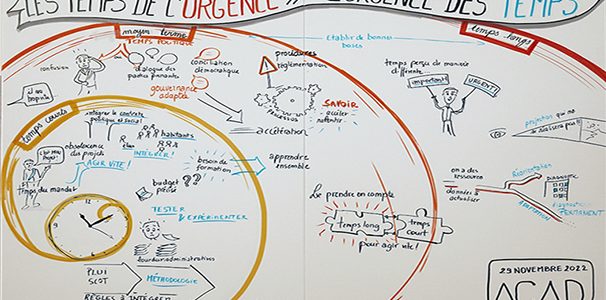 LES TEMPS DE L'URGENCE // L'URGENCE DES TEMPS
moyen terme
TEMPS POLITIQUE
confusion
dialogue des
parties prenantes
conciliation
démocratique
gouvernance
adaptée
procédures
réglementation
PROCESSUS
SAVOIR
accélérer
ralentir
accélération
Etablir de bonnes
bases
temps longs
temps perçu de manière
différente
important
URGENT!
projection qui ne
se réalisera pas!!
temps courts
intégrer le contexte
politique et social!
habitants
INTÉGRER!
obsolescence
des projets
AGIR VITE!
Temps du mandat
besoin de
formation
apprendre
ensemble
budget
précis
??
TESTER
EXPÉRIMENTER
lourdeur administratives
PLUI
SCOT
MÉTHODOLOGIE
RÈGLES À INTÉGRER
Le prendre en compte
temps long
temps
court
pour agir vite!
on a des
ressources
données à
actualiser
ADAPTATION
DIAGNOSTIC
diagnostic
PERMANENT
29 NOVEMBRE 2022
ACAD